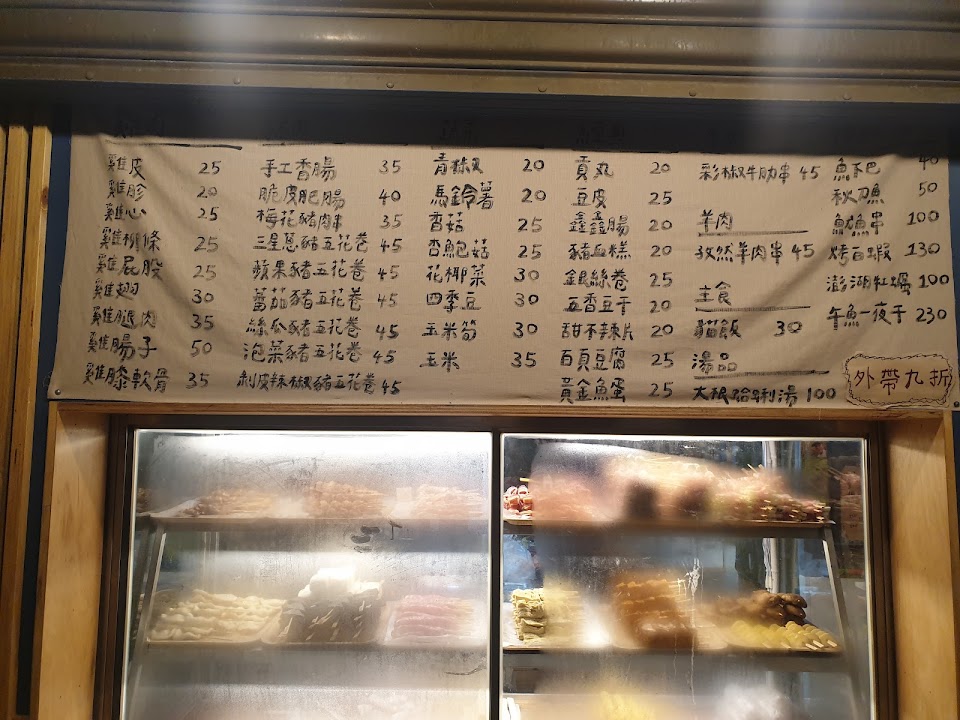 雞皮 25
雞胗 20
雞心 25
雞柳條 25
雞屁股 25
雞翅 30
雞腿肉 35
雞腸子 50
雞膝軟骨 35
手工香腸 35
脆皮肥腸 40
梅花豬肉串 35
三星蔥豬五花卷 45
蘋果豬五花卷 45
蕃茄豬五花卷 45
絲瓜豬五花卷 45
泡菜豬五花卷 45
剝皮辣椒豬五花卷 45
青椒 20
馬鈴薯 20
香菇 25
杏鮑菇 25
花椰菜 30
四季豆 30
玉米筍 30
玉米 35
貢丸 20
豆皮 25
鑫鑫腸 20
豬血糕 20
銀絲卷 25
五香豆干 20
甜不辣片 20
百頁豆腐 25
黃金魚蛋 25
彩椒牛肋串 45
羊肉
孜然羊肉串 45
主食
貓飯 30
湯品
大根蛤蜊湯 100
魚下巴 40
秋刀魚 50
魷魚串 100
烤白蝦 130
澎湖牡蠣 100
午魚一夜干 230
外帶九折